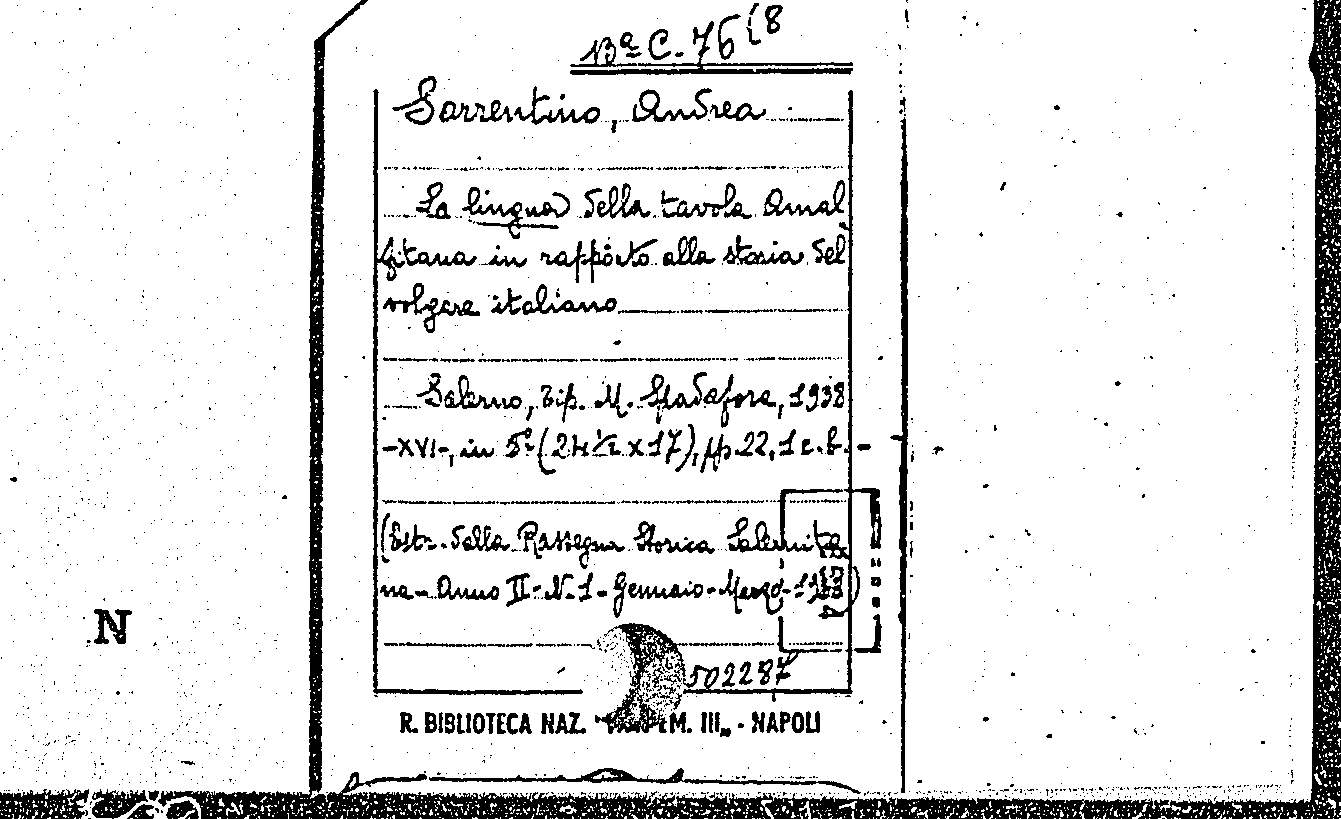 Bª C. 76 (8
Sorrentino, Andrea
La lingua della tavola Amal
fitana in rapporto alla storia del
volgare italiano
Salerno, Tip. M. Spadafora, 1938
-XVI-, in 8º (24 ½ x 17), pp. 22, 1 c. b. -
(Estr. dalla Rassegna Storica Salernita
na - Anno II - N. 1 - Gennaio-Marzo -
502287
N
R. BIBLIOTECA NAZ. EM. III„ - NAPOLI